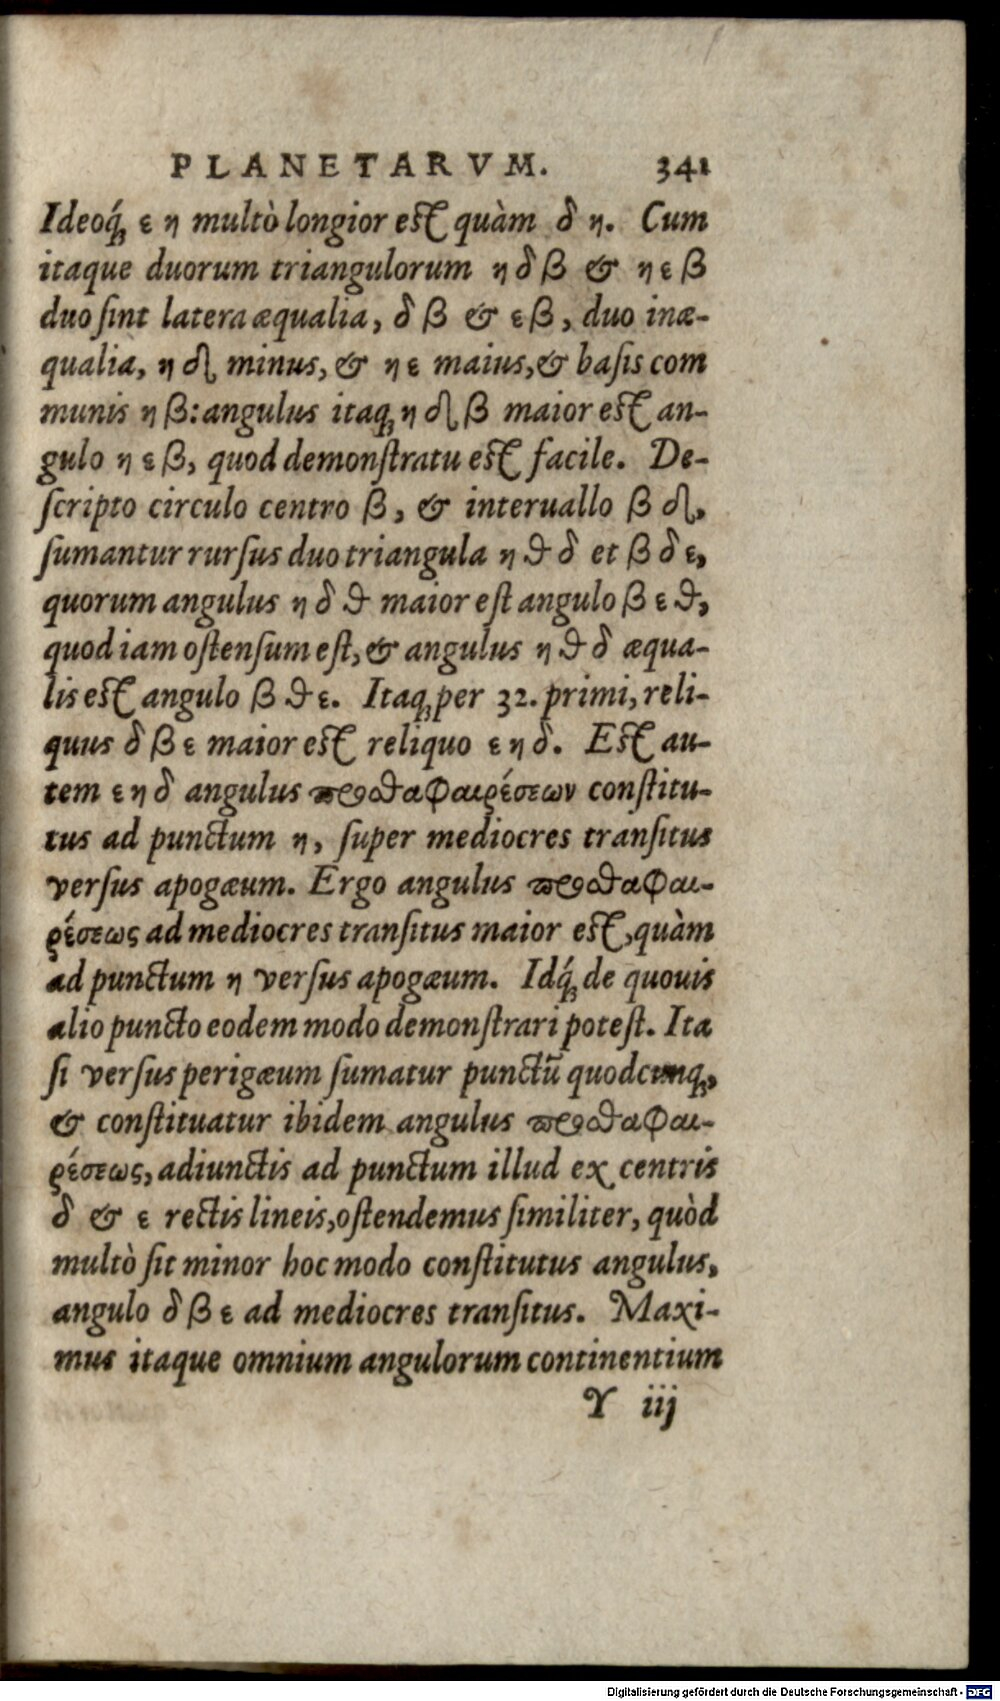 PLANETARVM. 341
Ideoq́; ε η multò longior est quàm δ η. Cum
itaque duorum triangulorum η δ β & η ε β
duo ſint latera æqualia, δ β & ε β, duo inæ-
qualia, η δ minus, & η ε maius, & baſis com
munis η β: angulus itaq; η δ β maior est an-
gulo η ε β, quod demonſtratu est facile. De-
ſcripto circulo centro β, & interuallo β δ,
ſumantur rurſus duo triangula η θ δ et β δ ε,
quorum angulus η δ θ maior eſt angulo β ε θ,
quod iam oſtenſum eſt, & angulus η θ δ æqua-
lis est angulo β θ ε. Itaq; per 32. primi, reli-
quus δ β ε maior est reliquo ε η δ. Est au-
tem ε η δ angulus προσθαφαιρέσεων conſtitu-
tus ad punctum η, ſuper mediocres tranſitus
verſus apogæum. Ergo angulus προσθαφαι-
ρέσεως ad mediocres tranſitus maior est, quàm
ad punctum η verſus apogæum. Idq́; de quouis
alio puncto eodem modo demonſtrari poteſt. Ita
ſi verſus perigæum ſumatur punctū quodcunq;,
& conſtituatur ibidem angulus προσθαφαι-
ρέσεως, adiunctis ad punctum illud ex centris
δ & ε rectis lineis, oſtendemus ſimiliter, quòd
multò ſit minor hoc modo conſtitutus angulus,
angulo δ β ε ad mediocres tranſitus. Maxi-
mus itaque omnium angulorum continentium
Y iij
Digitalisierung gefördert durch die Deutsche Forschungsgemeinschaft - DFG